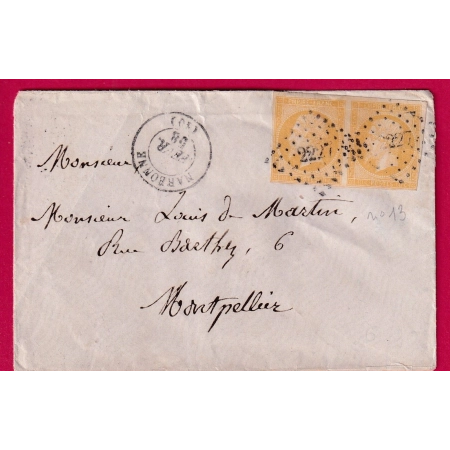 NARBONNE
(10)
2227
2227
Monsieur
Monsieur Louis de Martin,
nº 13
Rue Barthez, 6
Montpellier